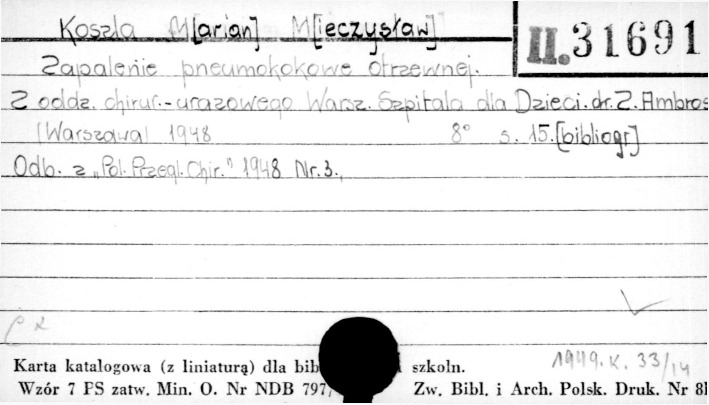 Koszla M[arian] M[ieczysław]
II.31691
Zapalenie pneumokokowe otrzewnej.
Z oddz. chirur.-urazowego Warsz. Szpitala dla Dzieci. dr. Z. Ambros
(Warszawa) 1948 8° s. 15.[bibliogr]
Odb. z „Pol. Przegl. Chir." 1948 Nr. 3.,
Karta katalogowa (z liniaturą) dla bib szkoln.
1949. K. 33/14
Wzór 7 PS zatw. Min. O. Nr NDB 797/ Zw. Bibl. i Arch. Polsk. Druk. Nr 8